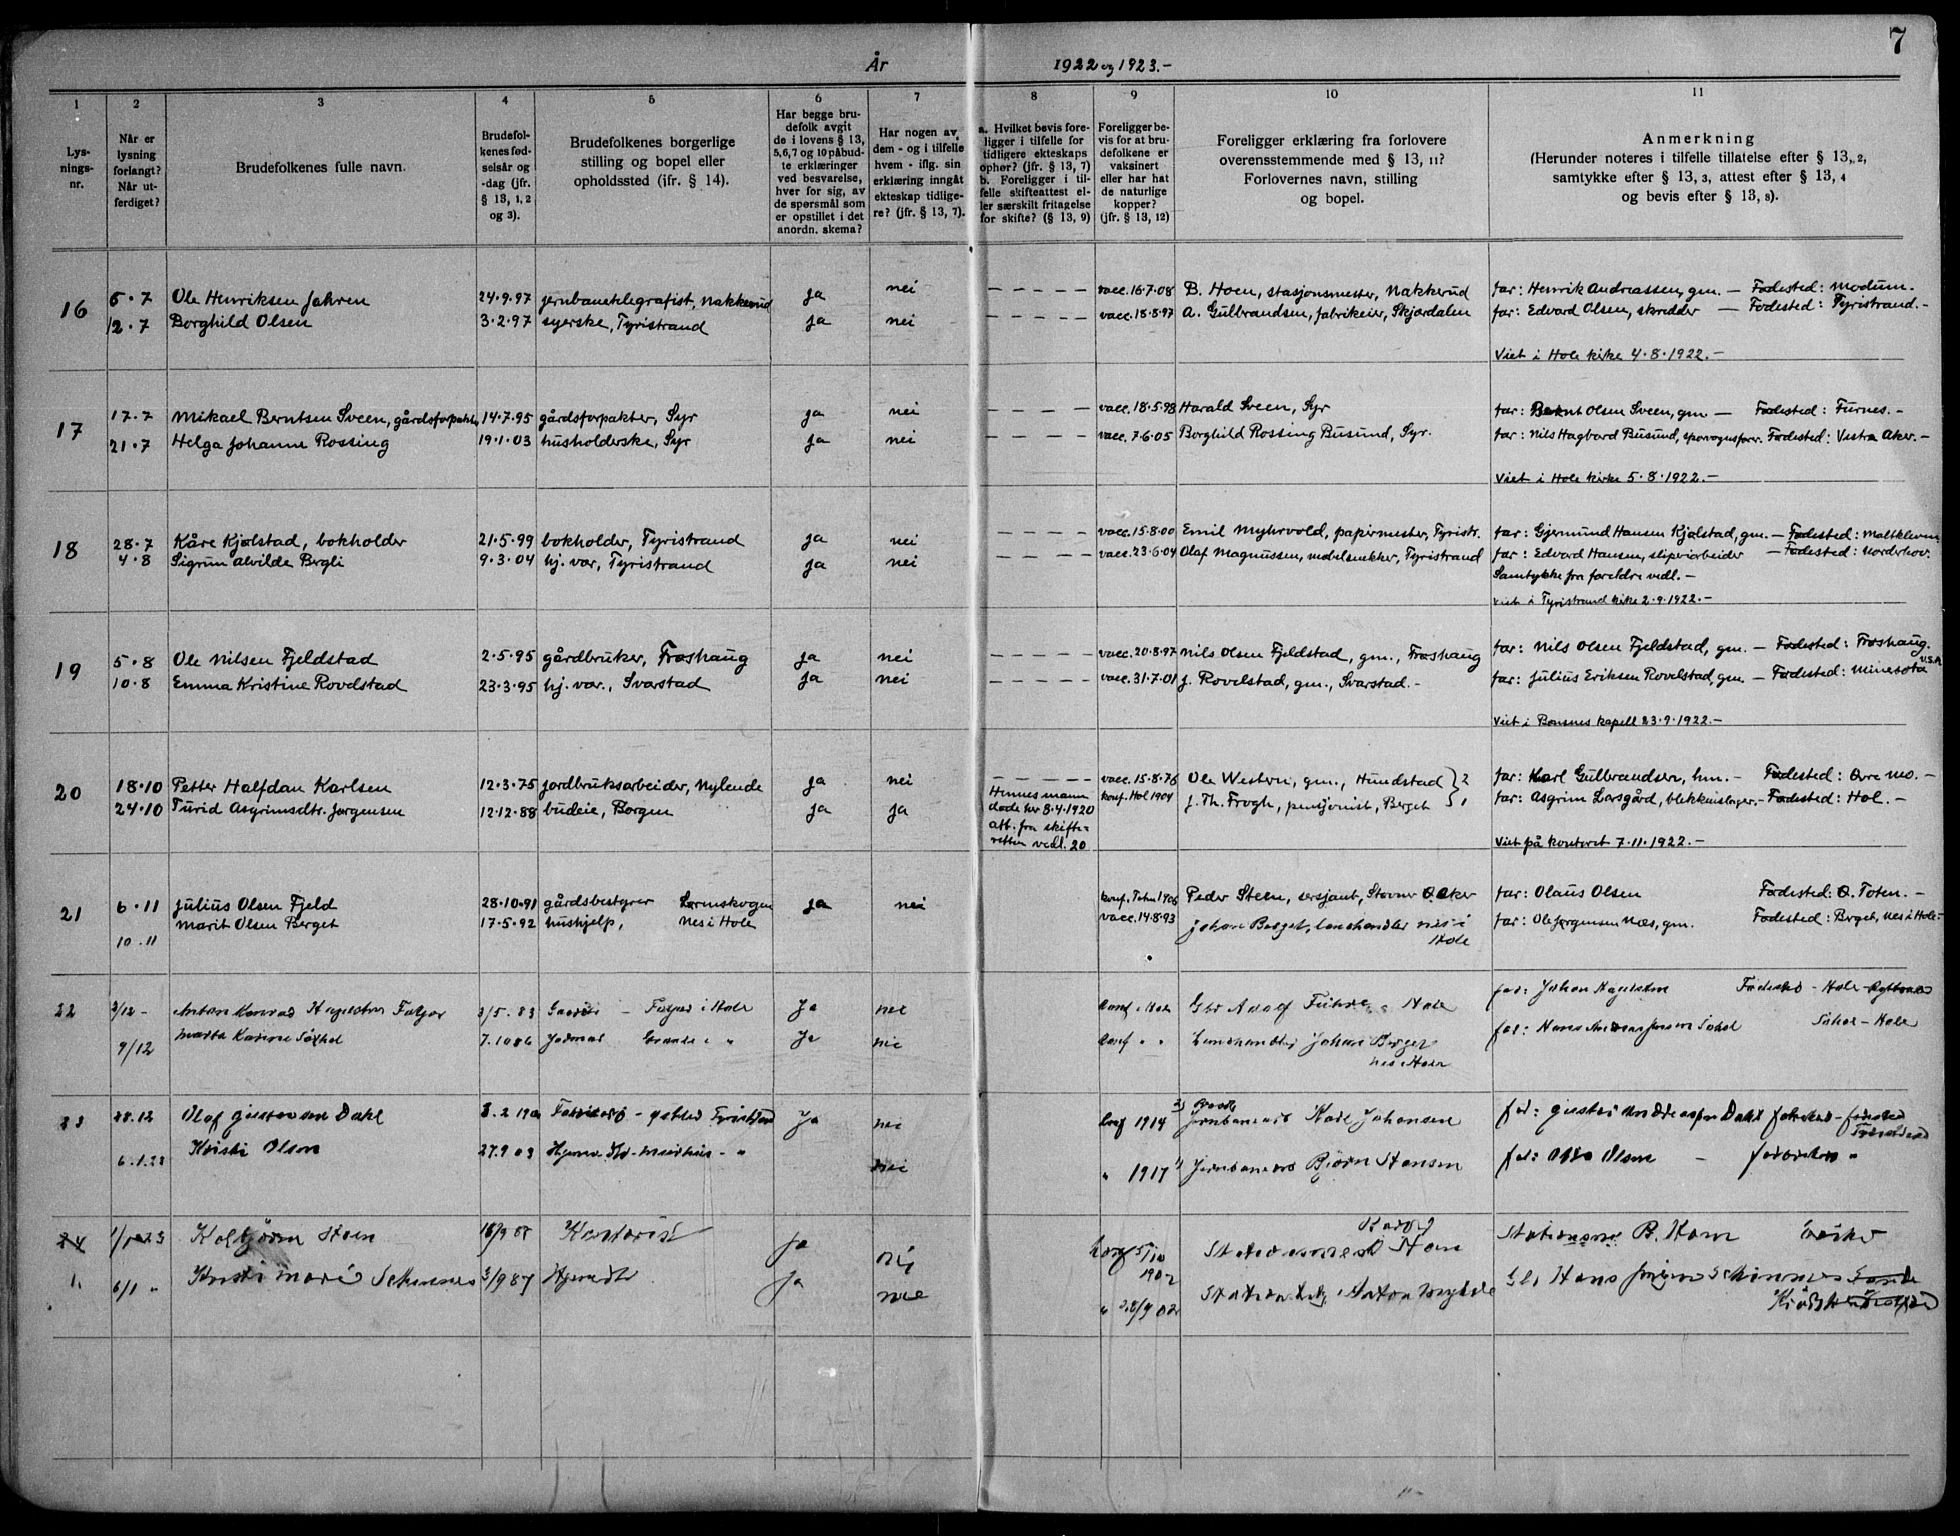 7
År 1922 og 1923.-
1 2 3 4 5 6 7 8 9 10 11
Lys-
nings-
nr.
Når er
lysning
forlangt?
Når ut-
ferdiget?
Brudefolkenes fulle navn.
Brudefol-
kenes fød-
selsår og
-dag (jfr.
§ 13, 1, 2
og 3).
Brudefolkenes borgerlige
stilling og bopel eller
opholdssted (ifr. § 14).
Har begge bru-
defolk avgit
de i lovens § 13,
5,6,7 og 10 påbud-
te erklæringer
ved besvarelse,
hver for sig, av
de spørsmål som
er opstillet i det
anordn. skema?
Har nogen av
dem - og i tilfelle
hvem - iflg. sin
erklæring inngåt
ekteskap tidlige-
re? (jfr. § 13, 7).
a. Hvilket bevis fore-
ligger i tilfelle for
tidligere ekteskaps
ophør? (jfr. § 13, 7)
b. Foreligger i til-
felle skifteattest el-
ler særskilt fritagelse
for skifte? (§ 13, 9)
Foreligger be-
vis for at bru-
defolkene er
vaksinert
eller har hat
de naturlige
kopper?
(jfr. § 13, 12)
Foreligger erklæring fra forlovere
overensstemmende med § 13, 11?
Forlovernes navn, stilling
og bopel.
Anmerkning
(Herunder noteres i tilfelle tillatelse efter § 13, 2,
samtykke efter § 13, 3, attest efter § 13, 4
og bevis efter § 13, 8).
16 5.7 Ole Henriksen Jahren 24.9.97 jernbanetelegrafist, Nakkerud ja nei - - - - vacc. 16.7.08 B. Hoen, stasjonsmester, Nakkerud far: Henrik Andreassen, gm. - Fødested: Modum.
12.7 Borghild Olsen 3.2.97 syerske, Tyristrand ja nei - - - - vacc. 18.8.97 A. Gulbrandsen, fabrikeier, Skjærdalen far: Edvard Olsen, skredder - Fødested: Tyristrand.-
Viet i Hole kirke 4.8.1922.-
17 17.7 Mikael Berntsen Sveen, gårdsforpakter 14.7.95 gårdsforpakter, Syr ja nei - - - - vacc. 18.5.98 Harald Sveen, Syr far: Bernt Olsen Sveen, gm - Fødested: Furnes.-
21.7 Helga Johanne Rossing 19.1.03 husholderske, Syr ja nei - - - - vacc. 7.6.05 Borghild Rossing Busund, Syr. far: Nils Hagbard Busund, sporvognsfører. Fødested: Vestra Aker.-
Viet i Hole kirke 5.8.1922.-
18 28.7 Kåre Kjølstad, bokholder 21.5.99 bokholder, Tyristrand ja nei - - - - vacc. 15.8.00 Emil Myhrvold, papirmester, Tyristr. far: Gjermund Hansen Kjølstad, gm. - Fødested:
4.8 Sigrun Alvilde Bergli 9.3.04 hj. vær, Tyristrand ja nei - - - - vacc. 23.6.04 Olaf Magnussen, møbelsnekker, Tyristrand far: Edvard Hansen, sliperiarbeider - Fødested: Norderhov.
Samtykke fra foreldre vedl.-
viet i Tyristrand kirke 2.9.1922.-
19 5.8 Ole Nilsen Fjeldstad 2.5.95 gårdbruker, Frøshaug ja nei - - - - vacc. 20.8.97 Nils Olsen Fjeldstad, gm., Frøshaug far: Nils Olsen Fjeldstad, gm. - Fødested: Frøshaug.
10.8 Emma Kristine Rovelstad 23.3.95 hj. vær., Svarstad ja nei - - - - vacc. 31.7.01 J. Rovelstad, gm., Svarstad.- far: Julius Eriksen Rovelstad, gm. - Fødested: Minesota U.S.A.
Viet i Bønsnes kapell 23.9.1922.-
20 18.10 Petter Halfdan Karlsen 12.3.75 jordbruksarbeider, Nylende ja nei - - - - vacc. 15.8.76 Ole Western, gm., Hundstad far: Karl Gulbrandsen, hm. - Fødested: Øvre Mo.-
24.10 Turid Asgrimsdtr. Jørgensen 12.12.88 budeie, Borgen ja ja Hennes mann konf. Hol 1904 J. Th. Frogh, pensjonist, Berget far: Asgrim Larsgård, blekkenslager.- Fødested: Hol.-
døde her 8.4.1920
att. fra skifte-
retten vedl. 20
Viet på kontoret 7.11.1922.-
21 6.11 Julius Olsen Fjeld 28.10.91 gårdsbestyrer Lørenskogen ja nei konf. Toten 1906 Peder Steen, sersjant, Stovner Ø. Aker far: Olaus Olsen Fødested: Ø. Toten.-
10.11 Marit Olsen Berget 17.5.92 hushjelp, Nes i Hole vacc. 14.8.93 Johan Berget, lanshandler Nes i
Hole
far: Ole Jørgensen Næs, gm. Fødested: Berget, Nes i Hole-
22 2/12 - Anton Konrad 3/5.83 i Hole Ja nei Conf i Hole Adolf Hole far: Johan Fødested - Hole
9/12 Marta Karine 7.10 86 Ja nei Conf " " Lanshandler Johan Berget
Nes i Hole
far: Hans Hole
23 28.12 Olaf Gustavsen Dahl Ja nei Conf 1914 Jernbanearb Karl Johansen far: Dahl
6.1.23 Kristi Olsen 27.9 03 nei " 1917 Jernbanearb Bjørn Hansen far: Otto Olsen -
24 Kolbjørn Hoen 18/9 87 Kontorist ja nei Conf 5/10
1902
Hoen B. Hoen
1. 6/1 " Kristi Marie 3/9 87 ja nei " 28/9 02 Anton Hans